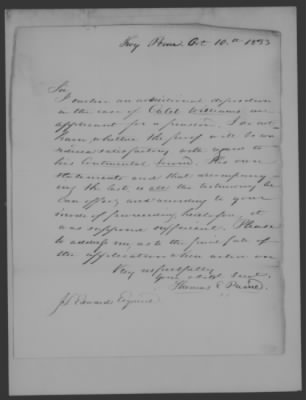 Troy Penna. Oct 10th 1833
Sir,
I enclose an additional deposition
in the case of Caleb Williams an
applicant for a pension. I do not
know whether the proof will be con-
sidered satisfactory with regard to
his Continental Service. His own
statements and that accompany-
ing the last, is all the testimony he
can offer, and according to your
mode of proceeding heretofore, it
was supposed sufficient. Please
to address me, as to the final fate of
the application when acted on
Very respectfully
Your Obdt Servt.
Thomas E.
J L Edwards Esquire